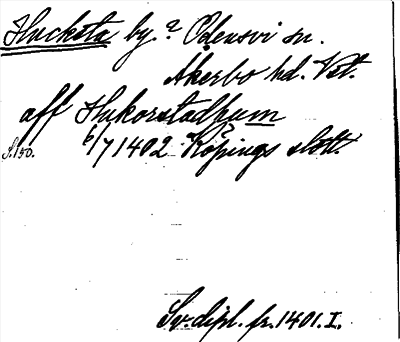 Hucksta by.? Odensvi sn.
Åkerbo hd. Vstm.
aff Hukorstadhum
S. 150. 6/7 1402 Köpings slott.
Sv. dipl. fr. 1401. I.